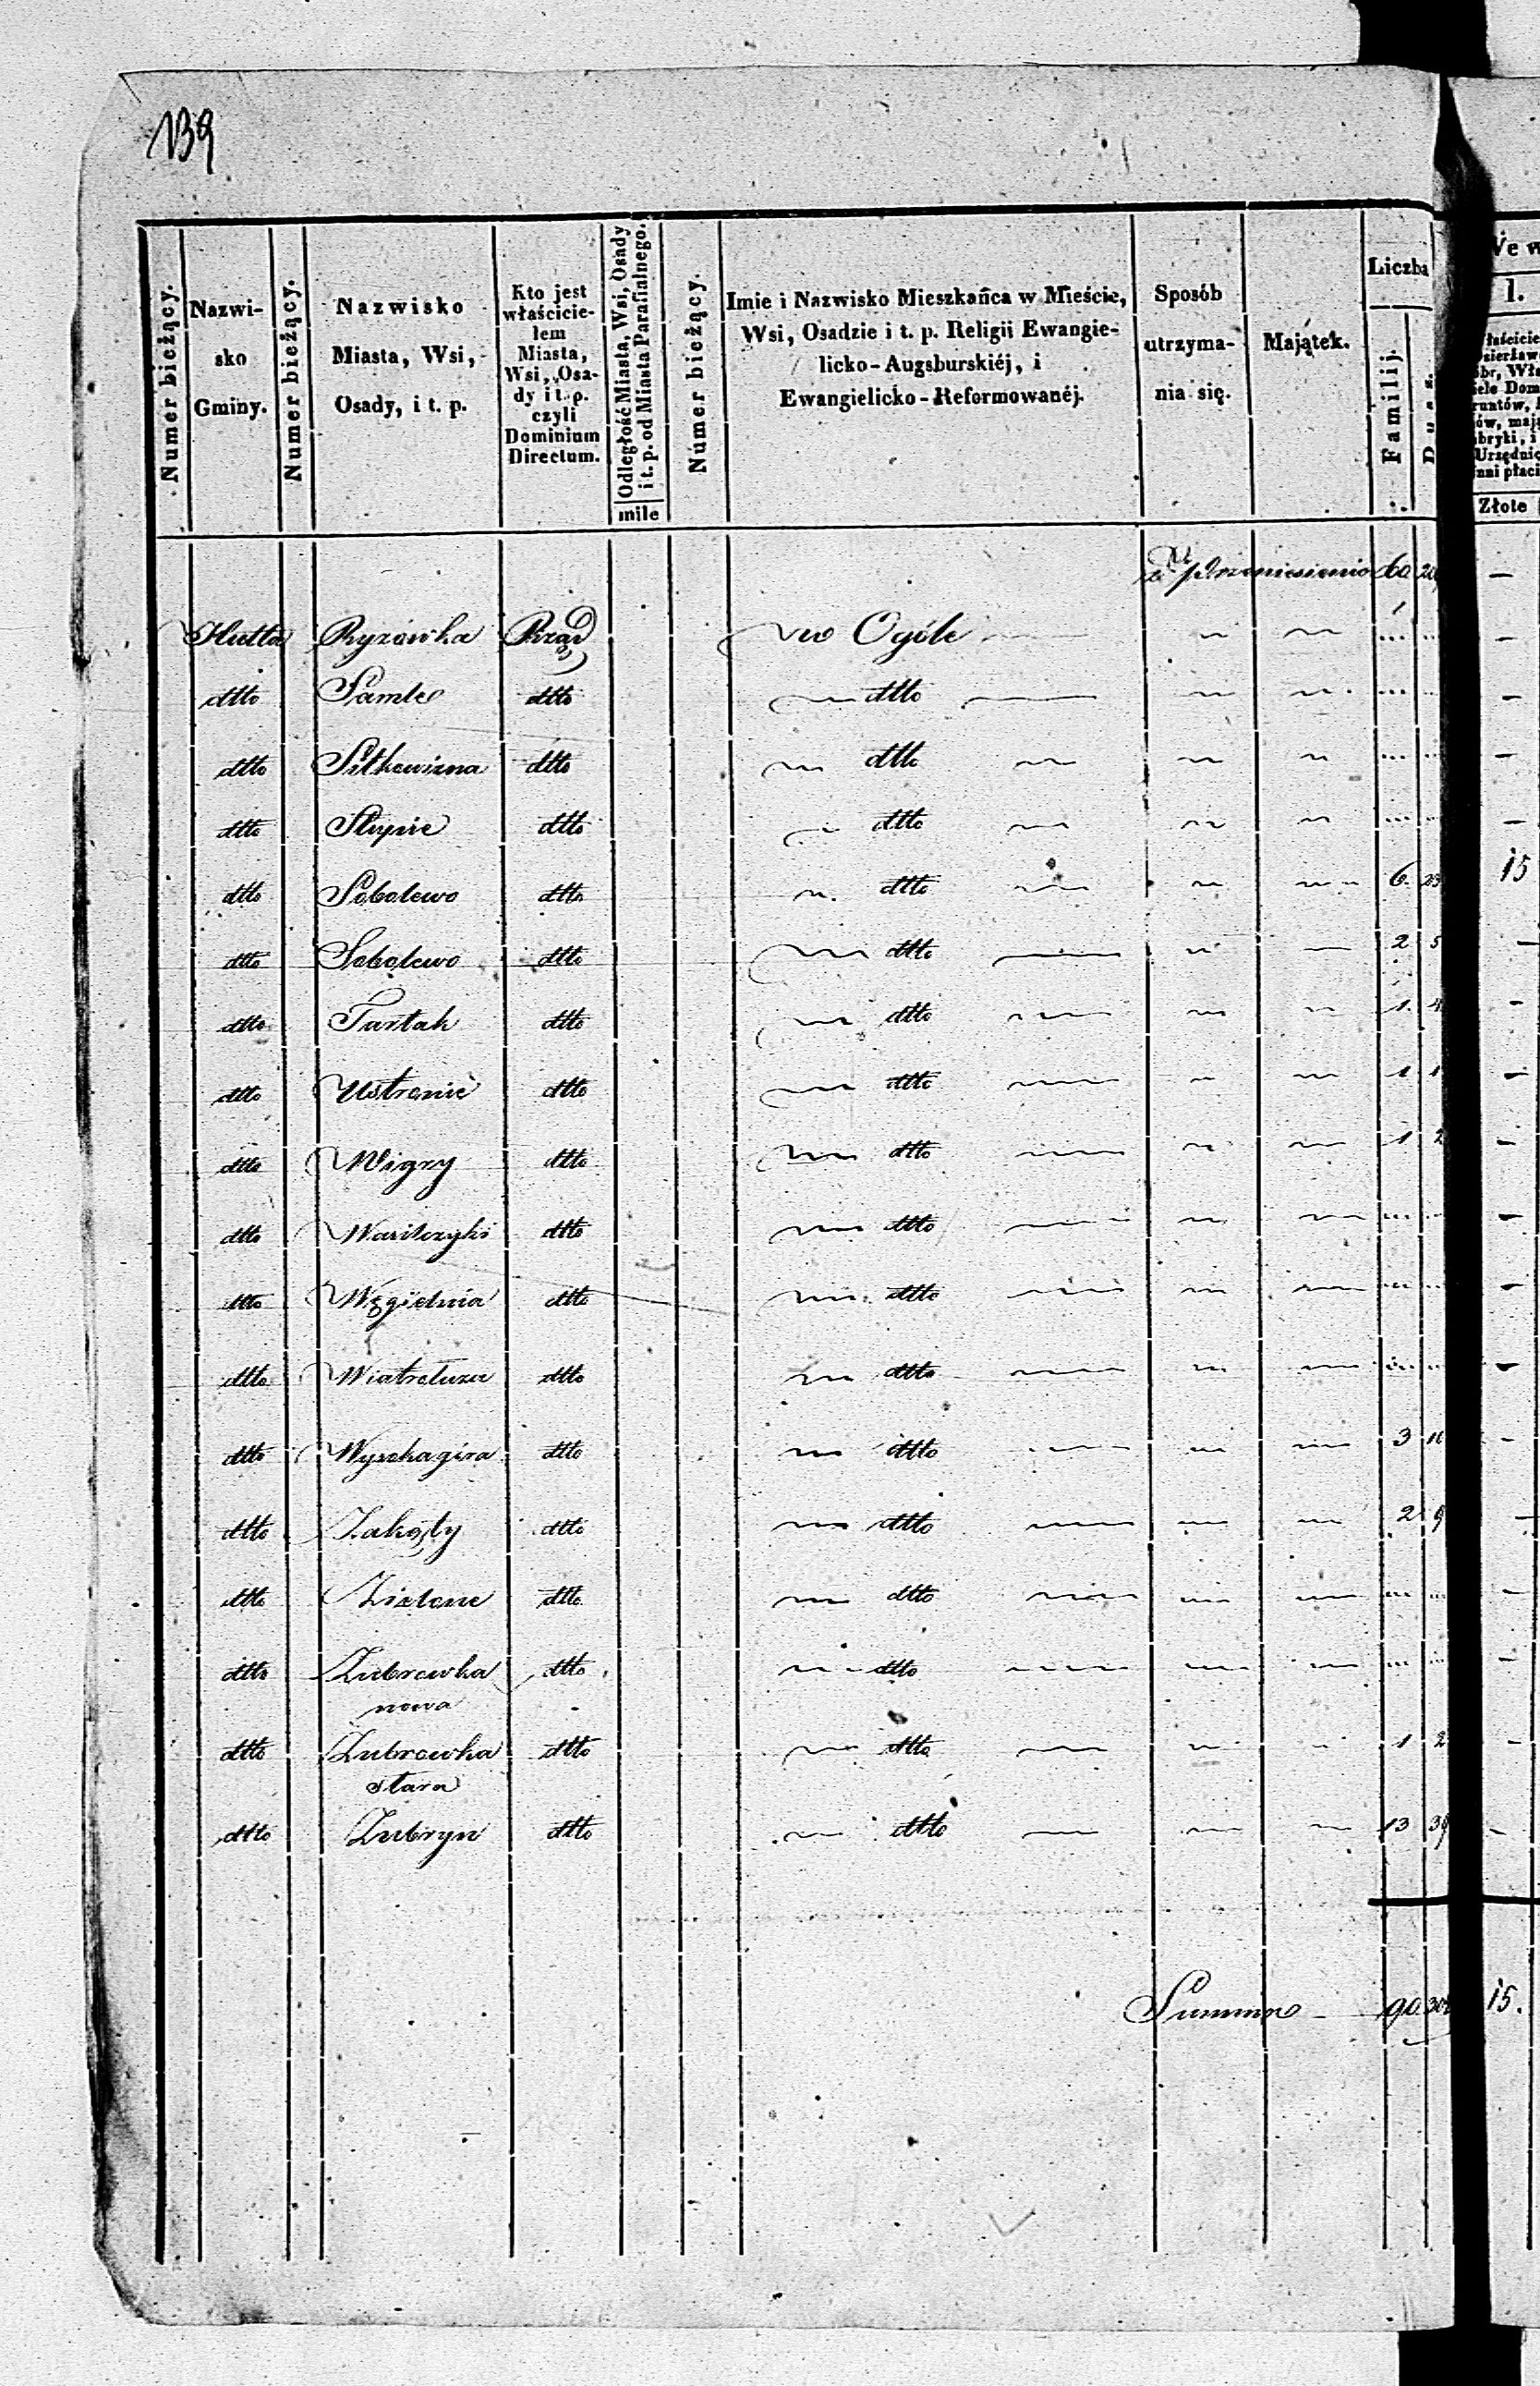 139
Numer bieżący.
Nazwi-
sko
Gminy.
Numer bieżący.
Nazwisko
Miasta, Wsi,
Osady, i t. p.
Kto jest
właścicie-
lem
Miasta,
Wsi, Osa-
dy i t. p.
czyli
Dominium
Directum.
Odległość Miasta, Wsi, Osady
i t. p. od Miasta Parafialnego.
mile
Numer bieżący.
Imie i Nazwisko Mieszkańca w Mieście,
Wsi, Osadzie i t. p. Religii Ewangie-
licko-Augsburskiéj, i
Ewangielicko-Reformowanéj.
Sposób
utrzyma-
nia się.
Majątek.
Liczba
Familij.
1.
Złote
z Przeniesienia 60 —
Hutta Ryzówka Rząd w Ogóle — — — ... ... —
dtto Samle dtto — dtto — — — ... ... —
dtto Sitkowizna dtto — dtto — — — ... ... —
dtto Słupie dtto — dtto — — — ... ... —
dtto Sobolewo dtto — dtto — — — 6. 23 15
dtto Sobolewo dtto — dtto — — — 2 5 —
dtto Tartak dtto — dtto — — — 1. 4 —
dtto Ustronie dtto — dtto — — — 1 1 —
dtto Wigry dtto — dtto — — — 1 2 —
dtto Wasilczyki dtto — dtto — — — ... ... —
dtto Węgielnia dtto — dtto — — — ... ... —
dtto Wiatrołuza dtto — dtto — — — ... ... —
dtto Wysokagóra dtto — dtto — — — 3 —
dtto Zakąty dtto — dtto — — — 2 9 —
dtto Zielone dtto — dtto — — — ... ... —
dtto Zubrowka dtto — dtto — — — ... ... —
nowa
dtto Zubrowka dtto — dtto — — — 1 2 —
stara
dtto Zubryn dtto — dtto — — — 13 39 —
Summa — 90 15.